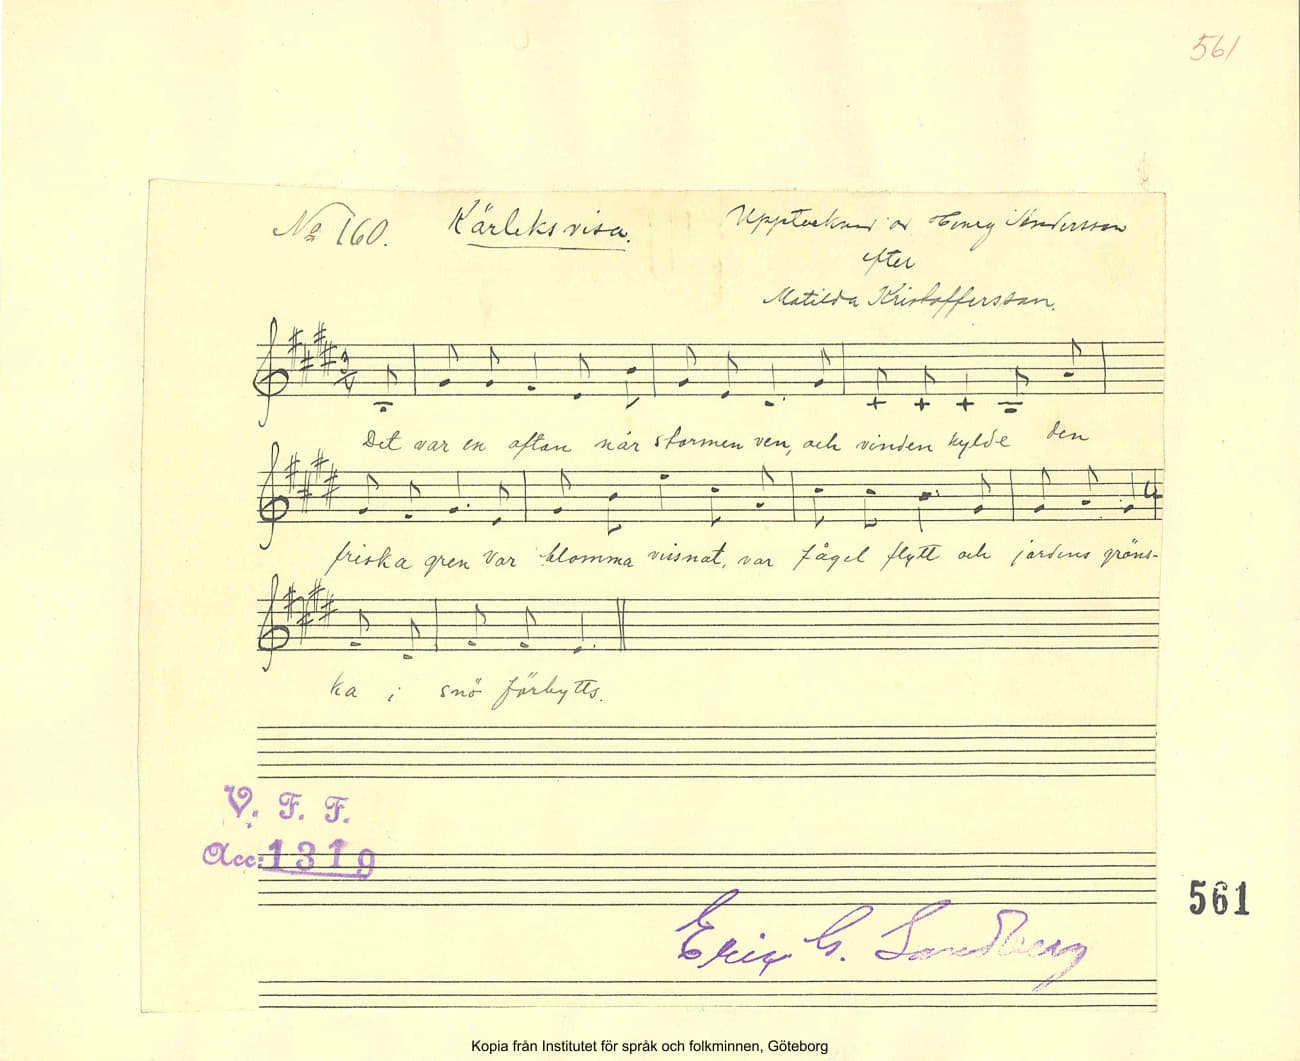 561
No 160. Kärleksvisa. Upptecknad av Henry Andersson
efter
Matilda Kristoffersson.
3
4
Det var en afton när stormen ven, och vinden kylde den
friska gren Var blomma visnat, var fågel flytt och jordens gröns-
ka i snö förbytts.
V. F. F.
Acc: 1319
561
Erix G. Sandberg
Kopia från Institutet för språk och folkminnen, Göteborg